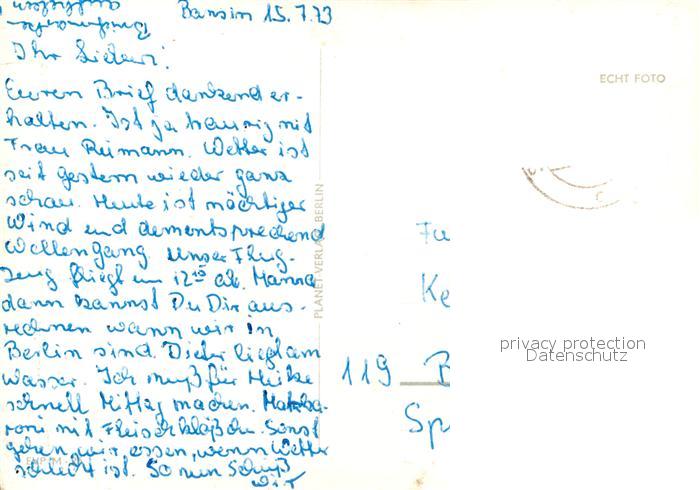 Bansin 15.7.73
Ihr Lieben!
Euren Brief dankend er-
halten. Ist ja traurig mit
Frau Reimann. Wetter ist
seit gestern wieder ganz
schau. Heute ist mächtiger
Wind und dementsprechend
Wellengang. Unser Flug-
zeug fliegt um 12 10 ab. Manna
dann kannst Du Dir aus-
rechnen wann wir in
Berlin sind. Dieter liegt am
Wasser. Ich muß für Heike
schnell Mittag machen. Makka-
roni mit Fleischklößchen. Sonst
gehen wir essen, wenn Wetter
schlecht ist. So nun Schluß
wir
PLANET-VERLAG BERLIN
ECHT FOTO
Fu
Ke
119 B
Sp
privacy protection
Datenschutz